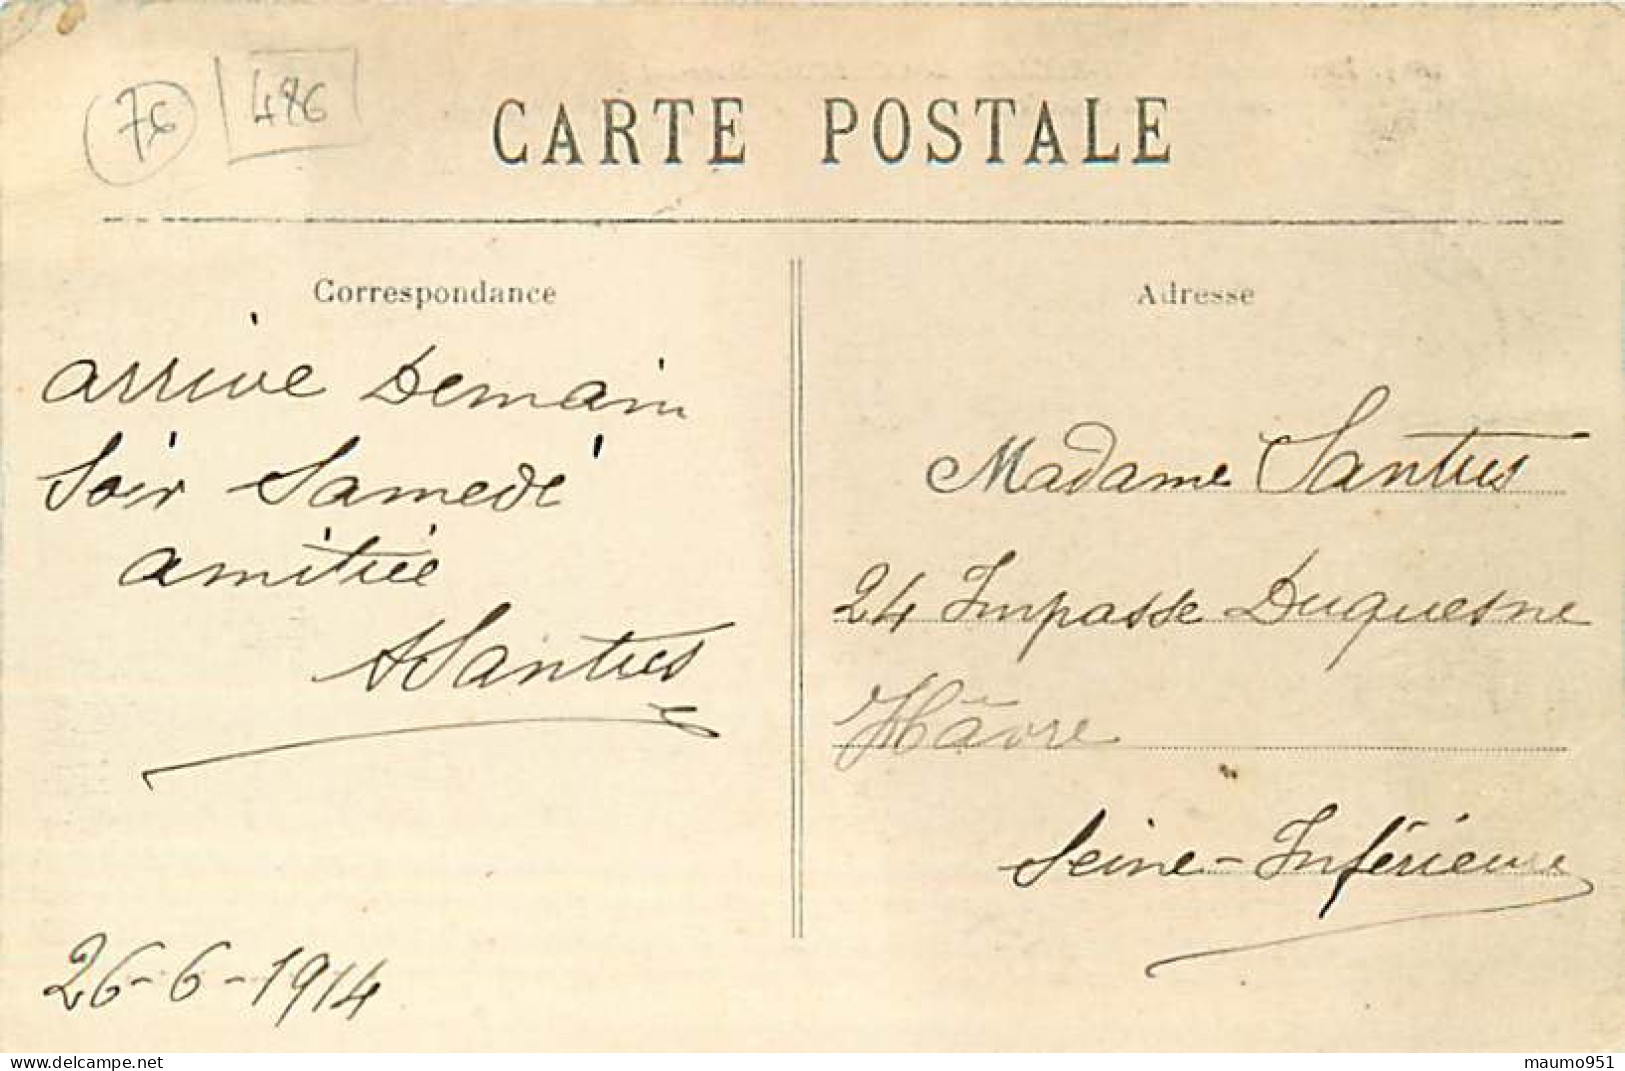 76
486
CARTE POSTALE
Correspondance
arrive Demain
Soir Samedé
amitiée
ASantus
26-6-1914
Adresse
Madame Santus
24 Impasse Duquesne
Hâvre
Seine-Inférieure
www.delcampe.net
maumo951